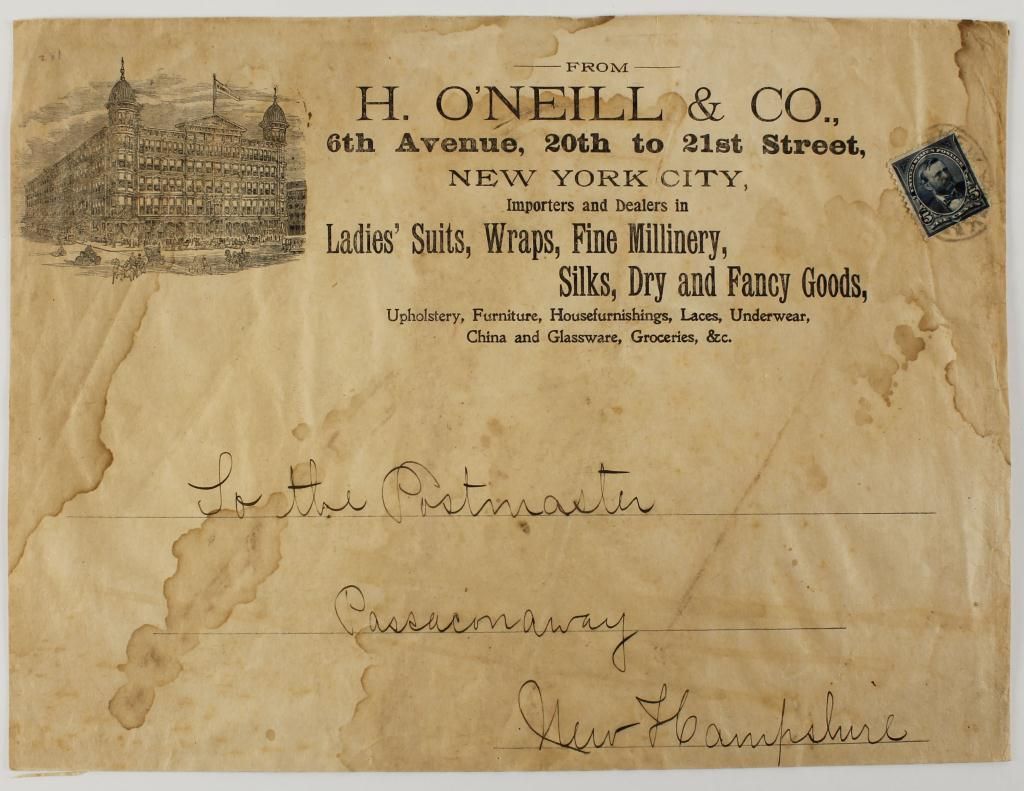 FROM
H. O'NEILL & CO.,
6th Avenue, 20th to 21st Street,
NEW YORK CITY,
Importers and Dealers in
Ladies' Suits, Wraps, Fine Millinery,
Silks, Dry and Fancy Goods,
Upholstery, Furniture, Housefurnishings, Laces, Underwear,
China and Glassware, Groceries, &c.
To the Postmaster
Passaconaway
New Hampshire